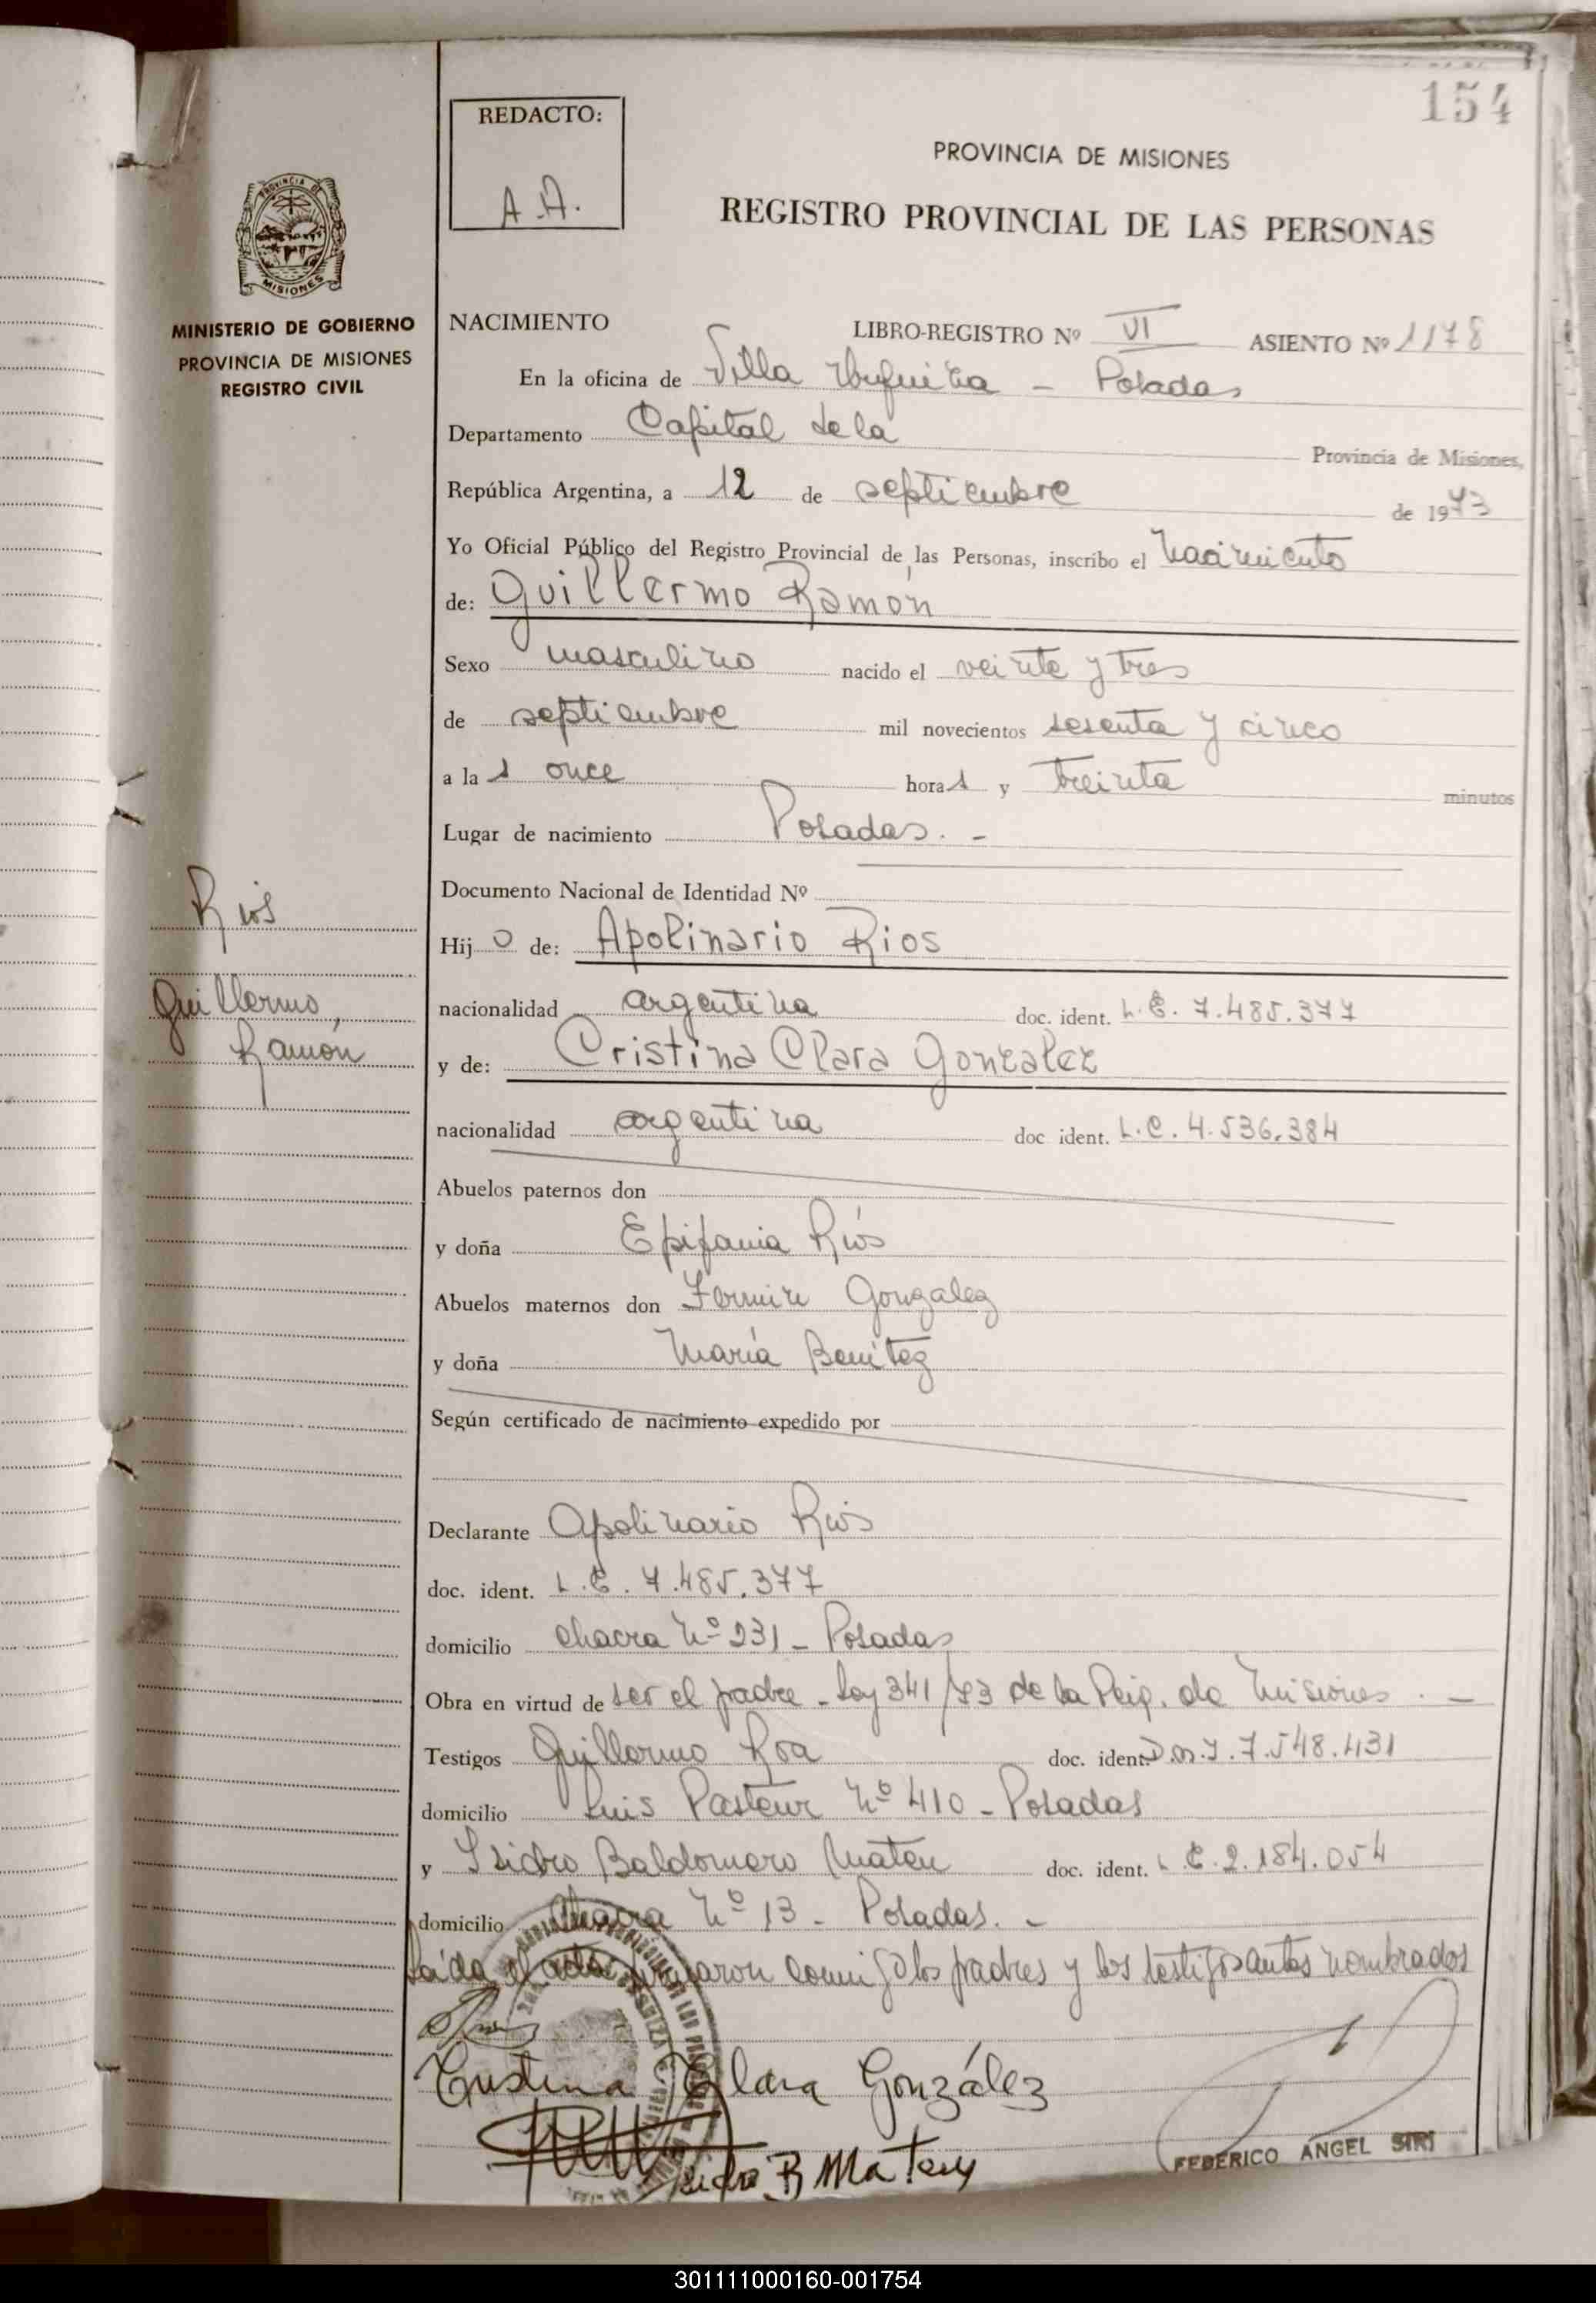 154
REDACTO:
A.A.
PROVINCIA DE MISIONES
REGISTRO PROVINCIAL DE LAS PERSONAS
PROVINCIA DE
MISIONES
MINISTERIO DE GOBIERNO
PROVINCIA DE MISIONES
REGISTRO CIVIL
NACIMIENTO LIBRO-REGISTRO Nº VI ASIENTO Nº 1178
En la oficina de Villa Urquiza - Posadas
Departamento Capital de la Provincia de Misiones,
República Argentina, a 12 de septiembre de 1973
Yo Oficial Público del Registro Provincial de las Personas, inscribo el nacimiento
de: Guillermo Ramón
Sexo masculino nacido el veinte y tres
de septiembre mil novecientos sesenta y cinco
a las once horas y treinta minutos
Lugar de nacimiento Posadas. -
Documento Nacional de Identidad Nº
Rios
Guillermo,
Ramón
Hijo de: Apolinario Rios
nacionalidad argentina doc. ident. L.E. 7.485.377
y de: Cristina Clara Gonzalez
nacionalidad argentina doc ident. L.C. 4.536.384
Abuelos paternos don
y doña Epifania Ríos
Abuelos maternos don Fermin Gonzalez
y doña María Benitez
Según certificado de nacimiento expedido por
Declarante Apolinario Ríos
doc. ident. L.E. 7.485.377
domicilio chacra Nº 231 - Posadas
Obra en virtud de ser el padre - Ley 341/73 de la Pcia. de Misiones. -
Testigos Guillermo Roa doc. ident. D.N.I. 7.548.431
domicilio Luis Pasteur Nº 410 - Posadas
y Isidro Baldomero doc. ident. L.E. 2.184.054
domicilio Chacra Nº 13 - Posadas. -
Leida el acta firmaron conmigo los padres y los testigos antes nombrados
Cristina Clara González
Isidro B
FEDERICO ANGEL SIRI
301111000160-001754